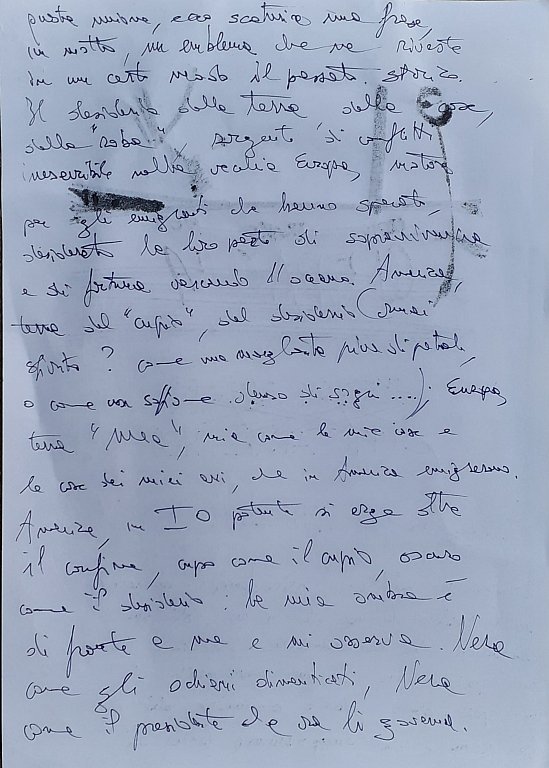 questa unione, ecco scaturire una frase,
un motto, un emblema che ne riveste
in un certo modo il passato storico.
Il desiderio della terra delle cose,
della "roba", sorgente di conflitti
inesauribile nella vecchia Europa, motore
per gli emigranti che hanno sperato,
desiderato la loro parte di sopravvivenza
e di fortuna varcando l'oceano. America,
terra del "cupio", del desiderio (ormai
sfinito? come una margherita priva di petali,
o come un soffione denso di sogni ....); Europa,
terra "Mea", mia come le mie cose e
le cose dei miei avi, che in America emigrarono.
America, un IO potente si erge oltre
il confine, cupo come il cupio, oscuro
come il desiderio: la mia ombra è
di fronte a me e mi osserva. Nera
come gli schiavi dimenticati, Nera
come il presidente che ora li governa.